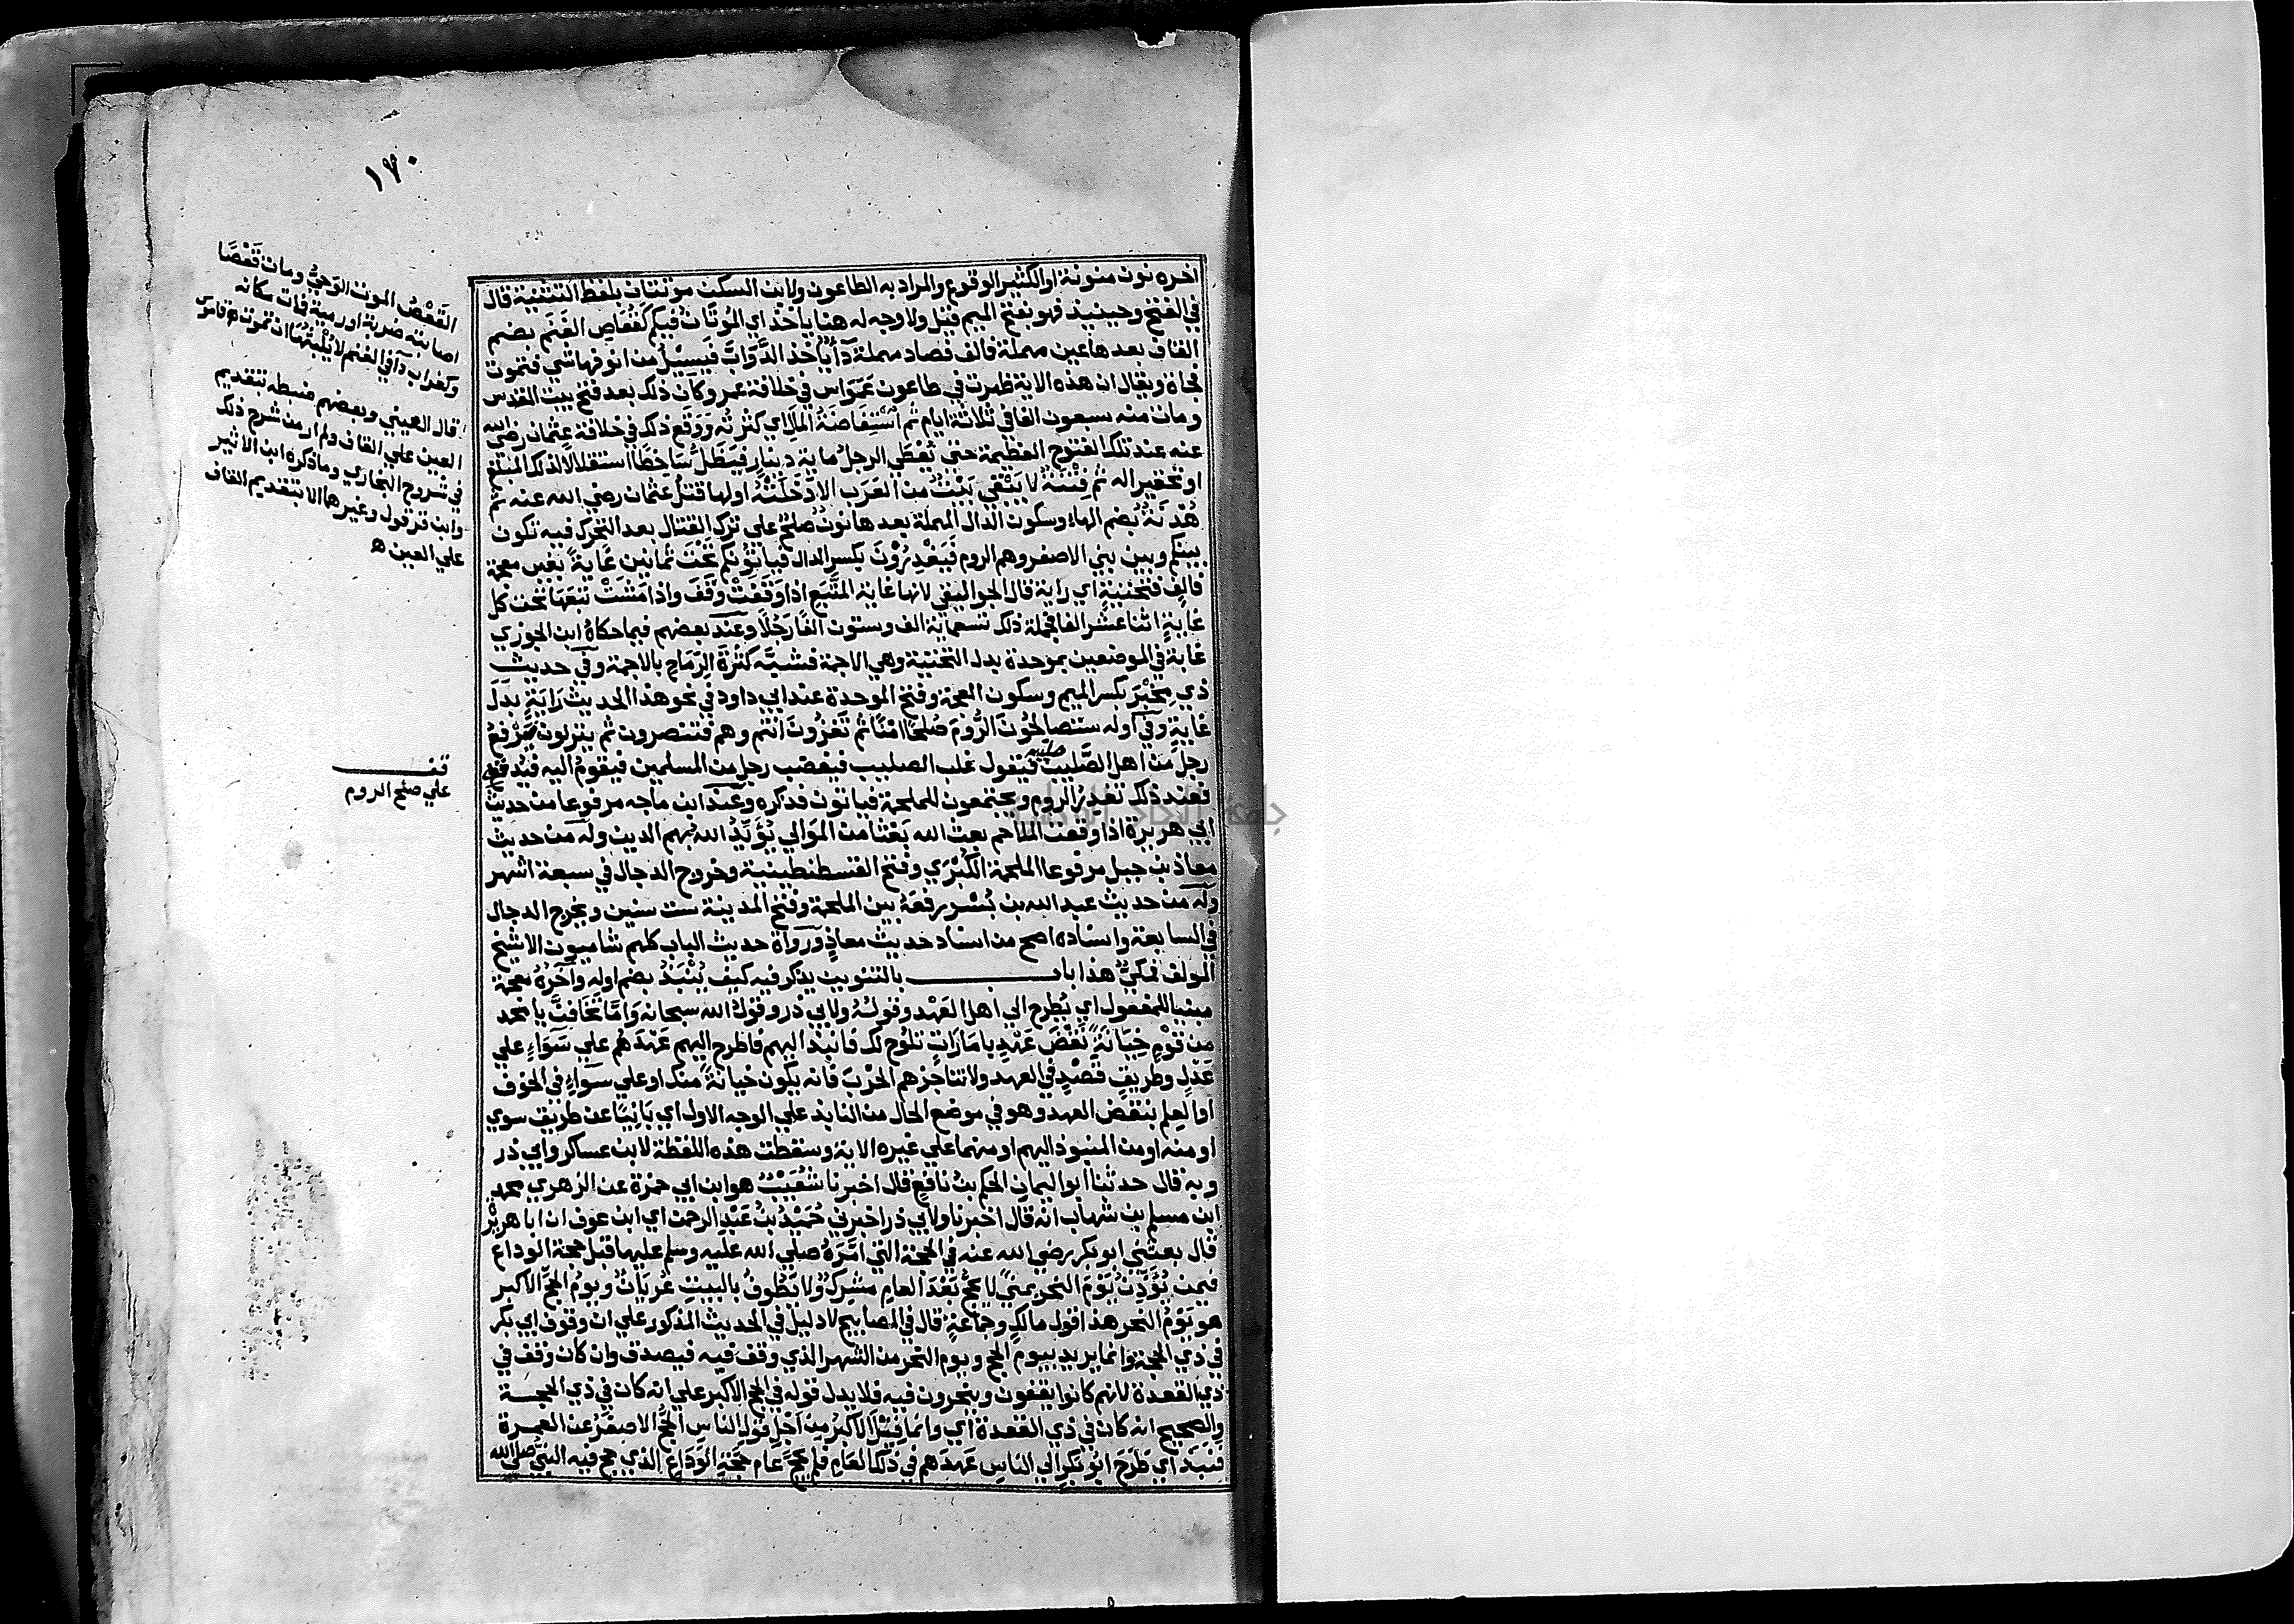 ١٧٠
القَعْصُ الموت الوَحِيُّ ومات قَعْصًا
اصابته ضربة او رمية فمات مكانه
وكغراب دآء في الغنم لا يلبثها ان تموت م قاموس
قال العيني وبعضهم ضبطه بتقديم
العين علي القاف ولم ار من شرح ذلك
في شروح البخاري وما ذكره ابن الاثير
وابن قرقول وغيرهما الا بتقديم القاف
علي العين ه
قف
علي صلح الروم
اخره نون منونة او الكثير الوقوع والمراد به الطاعون ولابن السكن موتتان بلفظ التثنية قال
في الفتح وحينيذ فهو بفتح الميم قيل ولا وجه له هنا ياخذ اي المُوتَانُ فيكم كَقُعَاصِ الغَنَم بضم
القاف بعدها عين مهملة فالف فصاد مهملة دآءٌ يأخذ الدَّوابَّ فَيَسِيْلُ من انوفها شي فتموت
فجاة ويقال ان هذه الاية ظهرت في طاعون عَمَوَاس في خلافة عمر وكان ذلك بعد فتح بيت المقدس
ومات منه سبعون الفا في ثلاثة ايام ثم اسْتِفَاضَةُ المَالِ اي كثرته ووقع ذلك في خلافة عثمان رضي الله
عنه عند تلك الفتوح العظيمة حتى يُعْطَي الرجلُ ماية دينارٍ فيَظَلُّ سَاخِطًا استقلالا لذلك المبلغ
او تحقيرا له ثم فِتْنَةٌ لا يَبْقَي بَيْتٌ من العَرَب الا دَخَلَتْهُ اولها قتلُ عثمان رضي الله عنه ثم
هُدْنَةٌ بضم الهاء وسكون الدال المهملة بعدها نون صلحٌ علي ترك القتال بعد التحرك فيه تكون
بينكم وبين بني الاصفر وهم الروم فَيَغْدِرُوْنَ بكسر الدال فيأتونكم تَحْتَ ثمانين غَايَةً بغين معجمة
فالفٍ فتحتيةٍ اي راية قال الجواليقي لانها غاية المتَّبَع اذا وَقَفَتْ وَقَفَ واذا مَشَتْ تبعَهَا تحت كل
غايةٍ اثنا عشر الفا فجملة ذلك تسعماية الف وستون الفًا رَجُلًا وعند بعضهم فيما حكاهُ ابن الجوزي
غابة في الموضعين بموحدة بدل التحتية وهي الاجمة فشبَّه كَثْرَةَ الرِّمَاحِ بالاجمة وفي حديث
ذي مِخْبَرَ بكسر الميم وسكون المعجمة وفتح الموحدة عند ابي داود في نحو هذا الحديث رَايَةٍ بَدَلَ
غايةٍ وفي اوله ستصالحُوْنَ الرُّومَ صُلحًا امْنًا ثم تَغْزُوْنَ انتم وهم فتنصرون ثم ينزلون مَرْجًا فيرفعُ
رجلٌ من اهل الصَّليب صليبه فيقول غلب الصليب فيغضب رجل من المسلمين فيقومُ اليه فيَدفعُه
فعند ذلك تغدرُ الروم ويجتمعون للملحمة فياتون فذكره وعند ابن ماجه مرفوعا من حديث
ابي هريرة اذا وقعت الملاحم بعث الله بَعْثًا من المَوَالي يُؤَيِّدُ اللهُ بهم الدين وله من حديث
معاذ بن جبل مرفوعا الملحمة الكُبْرَي وفتح القسطنطينية وخروج الدجال في سبعة اشهر
وله من حديث عبد الله بن بُسْر رفعَهُ بين الملحمة وفتح المدينة ست سنين ويخرج الدجال
في السابعة واسناده اصح من اسناد حديث معاذٍ ورواة حديث الباب كلهم شاميون الا شيخ
المولف فمكيٌّ هذا باب بالتنوين يذكر فيه كيف يُنْبَذُ بضم اوله وآخرُهُ معجمة
مبنيا للمفعول اي يُطرح الي اهل العَهْد وقولُهُ ولابي ذر وقول الله سبحانه وَامَّا تَخَافَنَّ يا محمد
من قَوْمٍ خِيَانَةً نَقْضَ عَهْدٍ بأمَارَاتٍ تلوْحُ لك فانبذ اليهم فاطرح اليهم عَهْدَهُم علي سَوَاءٍ علي
عَدْلٍ وطريقٍ قَصْدٍ في العهد ولا تناجزهم الحَرْبَ فانه يكون خيانةً منك او علي سواءٍ في الخوف
او العلم بنقض العهد وهو في موضع الحال من النابذ علي الوجه الاول اي ثابتا عن طريق سوي
او منه او من المنبوذ اليهم او منهما علي غيره الاية وسقطت هذه اللفظة لابن عساكر وابي ذر
وبه قال حدثنا ابو اليمان الحكم بنُ نافعٍ قال اخبرنا شُعَيْبٌ هو ابن ابي حمزة عن الزهري محمد
ابن مسلم بن شهاب انه قال اخبرنا ولابي ذر اخبرني حُمَيْدُ بنُ عَبْدِ الرحمن اي ابن عوف ان ابا هريرة
قال بعثني ابو بكر رضي الله عنه في الحجة التي امَّرَهُ صلي الله عليه وسلم عليها قبل حجة الوداع
فيمن يُؤَذِّنُ يَوْمَ النحر بمنًي لا يحُجُّ بَعْدَ العام مشركٌ ولا يَطُوفُ بالبيتِ عُرْيَانٌ ويومُ الحجِّ الاكبر
هو يَوْمُ النحر هذا قول مالكٍ وجماعةٍ قال في المصابيح لا دليل في الحديث المذكور علي ان وقوف ابي بكر
في ذي الحجة وانما يريد بيوم الحج ويوم النحر من الشهر الذي وقف فيه فيصدق وان كان وقف في
ذي القعدة لانهم كانوا يقفون وينحرون فيه فلا يدل قوله في الحج الاكبر علي انه كان في ذي الحجة
والصحيح انه كان في ذي القعدة اي وانما قيل الاكبر من اجل قول الناس الحجُّ الاصغرُ عن العمرة
فنبذ اي طَرَحَ ابُو بَكْرٍ الي الناس عهدَهم في ذلك العَامِ فلم يحجَّ عام حَجَّةِ الوَدَاعِ الذي حج فيه النبيُّ صلي الله